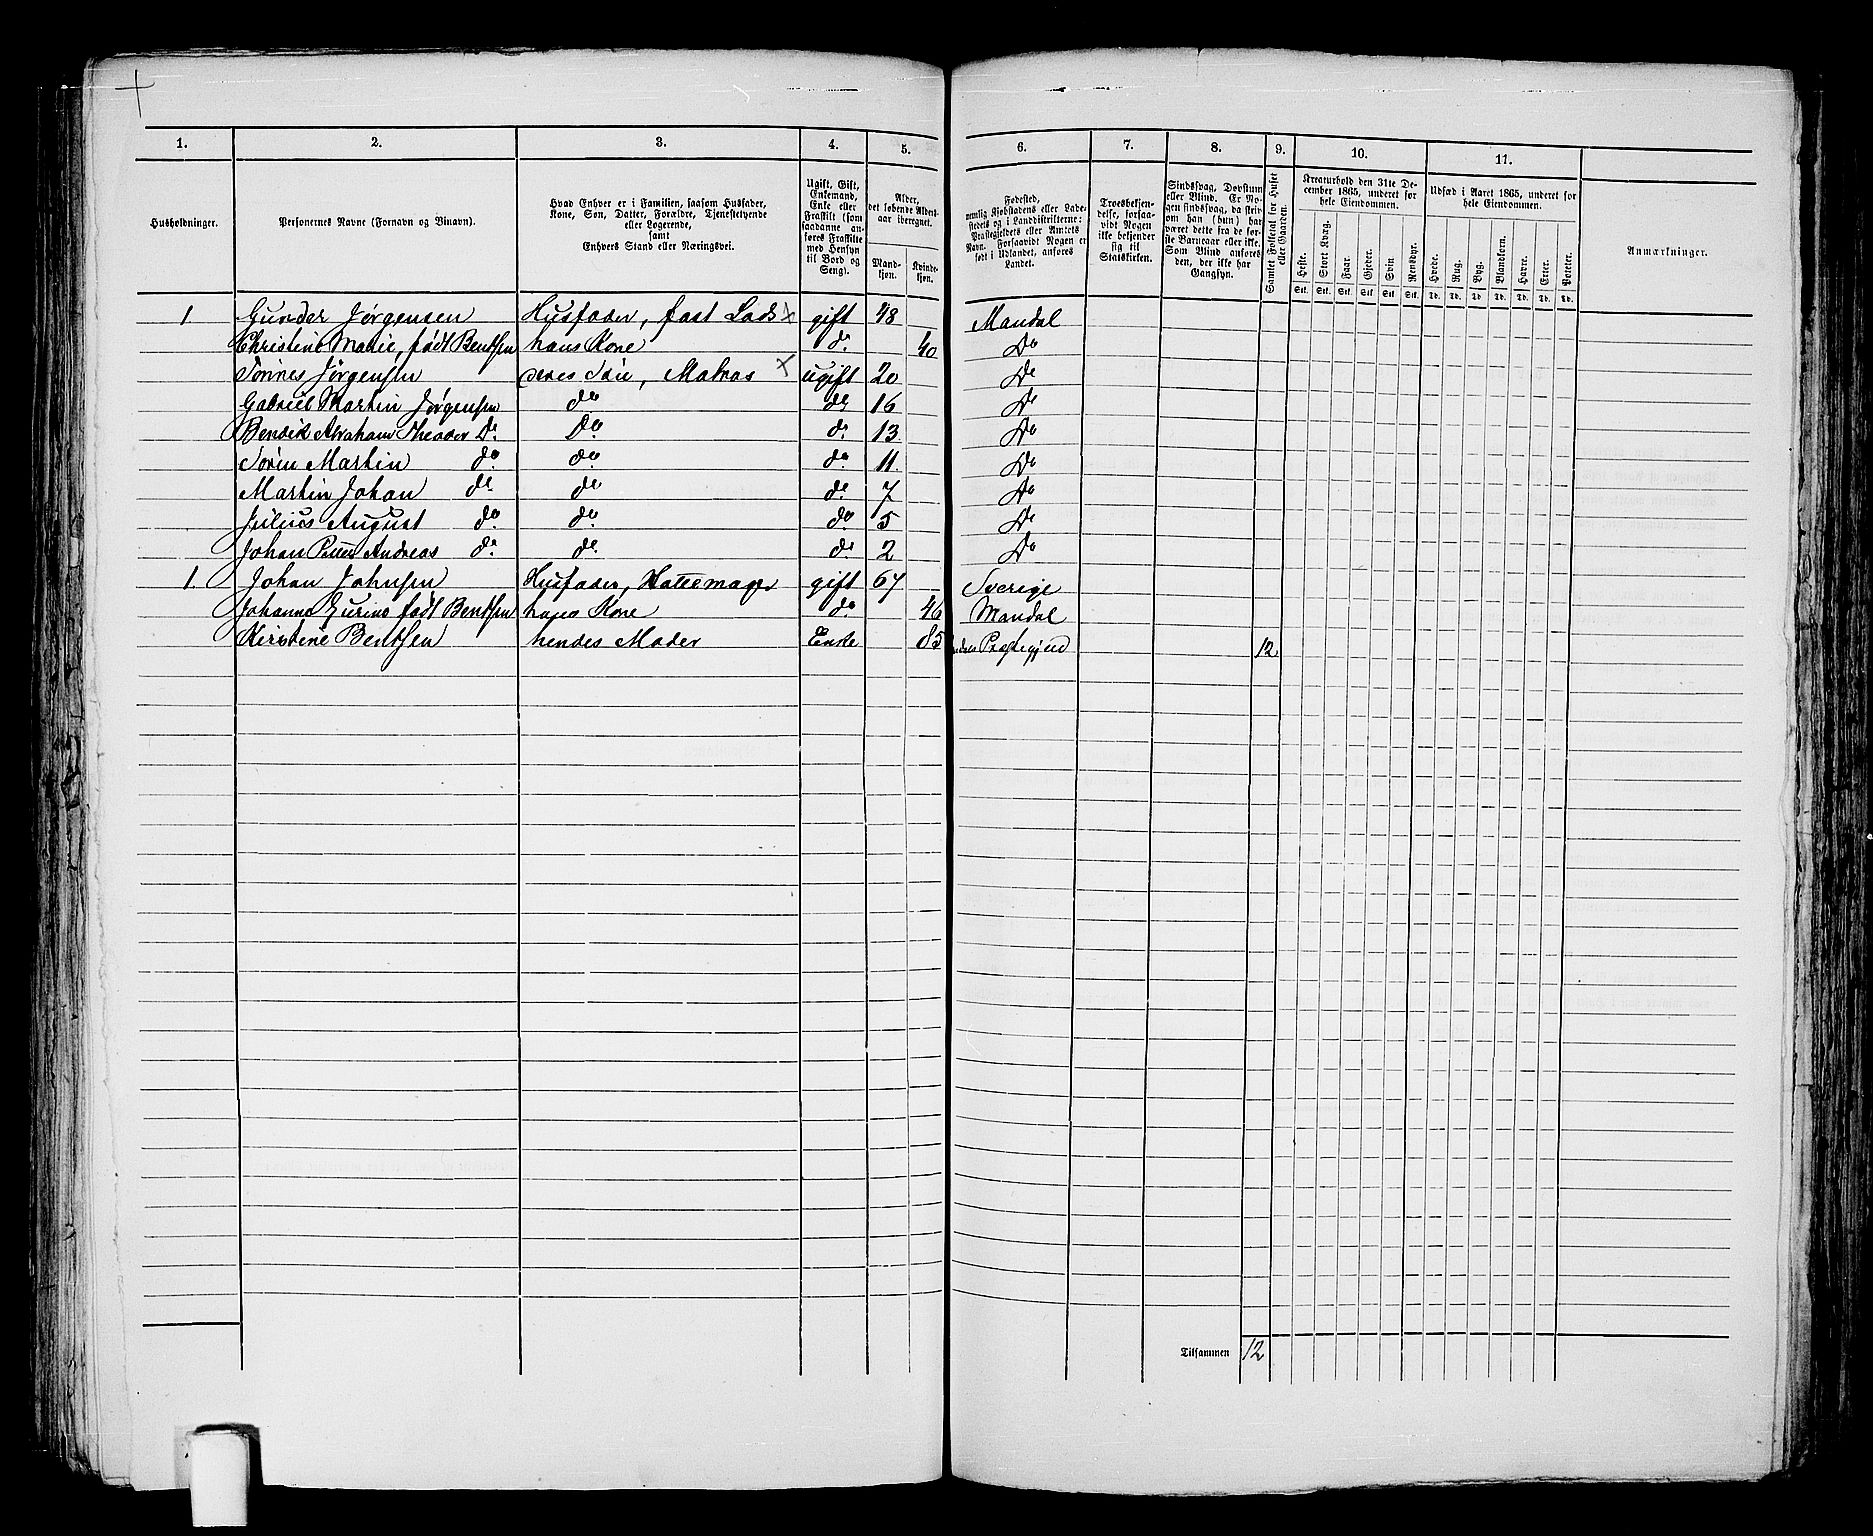 1. 2. 3. 4. 5. 6. 7. 8. 9. 10. 11.
Husholdninger.
Personernes Navne (Fornavn og Tilnavn).
Hvad Enhver er i Familien, saasom Husfader,
Kone, Søn, Datter, Forældre, Tjenestetyende
eller Logerende,
samt
Enhvers Stand eller Næringsvei.
Ugift, Gift,
Enkemand,
Enke eller
Fraskilt (som
saadanne an-
føres Fraskilte
med Hensyn
til Bord og
Seng).
Alder,
det løbende Alders-
aar iberegnet.
Mand-
kjøn.
Kvinde-
kjøn.
Fødested,
nemlig Kjøbstadens eller Lade-
stedets og i Landdistrikterne:
Præstegjeldets eller Amtets
Navn. Forsaavidt Nogen er
født i Udlandet, anføres
Landet.
Troesbekjen-
delse, forsaa-
vidt Nogen
ikke bekjender
sig til
Statskirken.
Sindssvag, Døvstum
eller Blind. Er No-
gen sindssvag, da skriv
om han (hun) har
været dette fra de før-
ste Barneaar eller ikke.
Som Blind anføres
den, der ikke har
Gangsyn.
Samlet Folketal for Huset
eller Gaarden.
Kreaturhold den 31te De-
cember 1865, underet for
hele Eiendommen.
Heste. Stort Kvæg. Faar. Gjeder. Svin. Rensdyr.
Stk. Stk. Stk. Stk. Stk. Stk.
Udsæd i Aaret 1865, underet for
hele Eiendommen.
Hvede. Rug. Byg. Blandkorn. Havre. Erter. Poteter.
Td. Td. Td. Td. Td. Td. Td.
Anmærkninger.
1 Gunder Jørgensen Husfader, fast Lods × gift 48 Mandal
Christine Marie, født Bentsen hans Kone do 40 Do
Tønnes Jørgensen deres Søn, Matros × ugift 20 Do
Gabriel Martin Jørgensen do do 16 Do
Bendik Abraham Theodor Do Do do 13 Do
Søren Martin do do do 11 Do
Martin Johan do do do 7 Do
Julius August do do do 5 Do
Johan Peter Andreas do do do 2 Do
1 Johan Johnsen Husfader, Hattemager gift 67 Sverige
Johanne Gurine født Bentsen hans Kone do 46 Mandal
Kirstine Bentsen hendes Moder Enke 85 Præstegjeld 12
Tilsammen 12